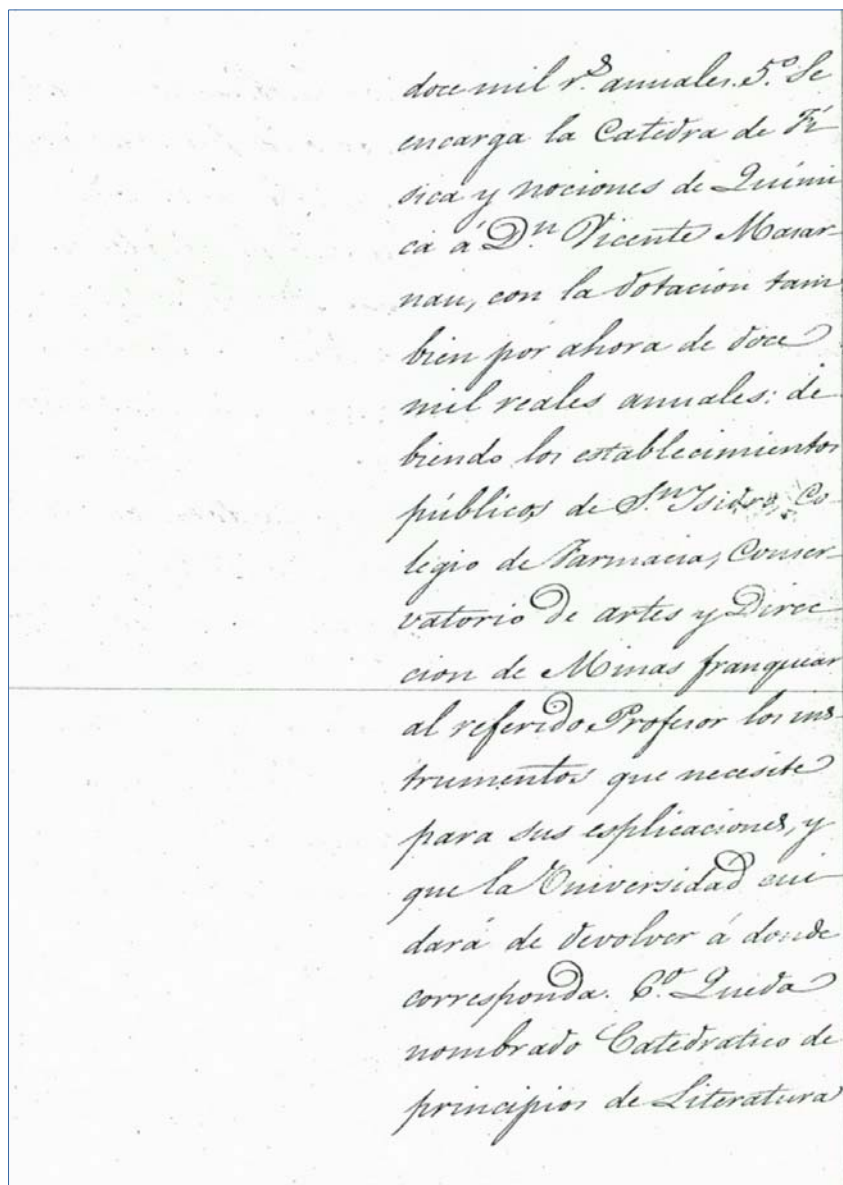 doce mil r.ˢ anuales. 5.º Se
encarga la Catedra de Fí
sica y nociones de Quími
ca á D.ⁿ Vicente Masar-
nau, con la dotacion tam
bien por ahora de doce
mil reales anuales: de
biendo los establecimientos
públicos de S.ⁿ Isidro, Co-
legio de Farmacia, Conser-
vatorio de artes y Direc
cion de Minas franquear
al referido Profesor los ins-
trumentos que necesite
para sus esplicaciones, y
que la Universidad cui
dará de devolver á donde
corresponda. 6.º Queda
nombrado Catedratico de
principios de Literatura